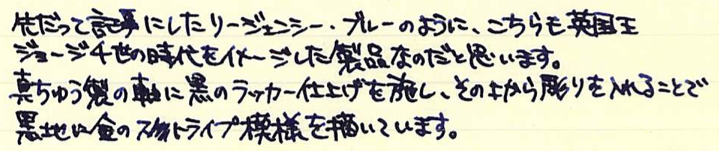 先だって記事にしたリージェンシー・ブルーのように、こちらも英国王
ジョージ4世の時代をイメージした製品なのだと思います。
真ちゅう製の軸に黒のラッカー仕上げを施し、その上から彫りを入れることで
黒地に金のストライプ模様を描いています。